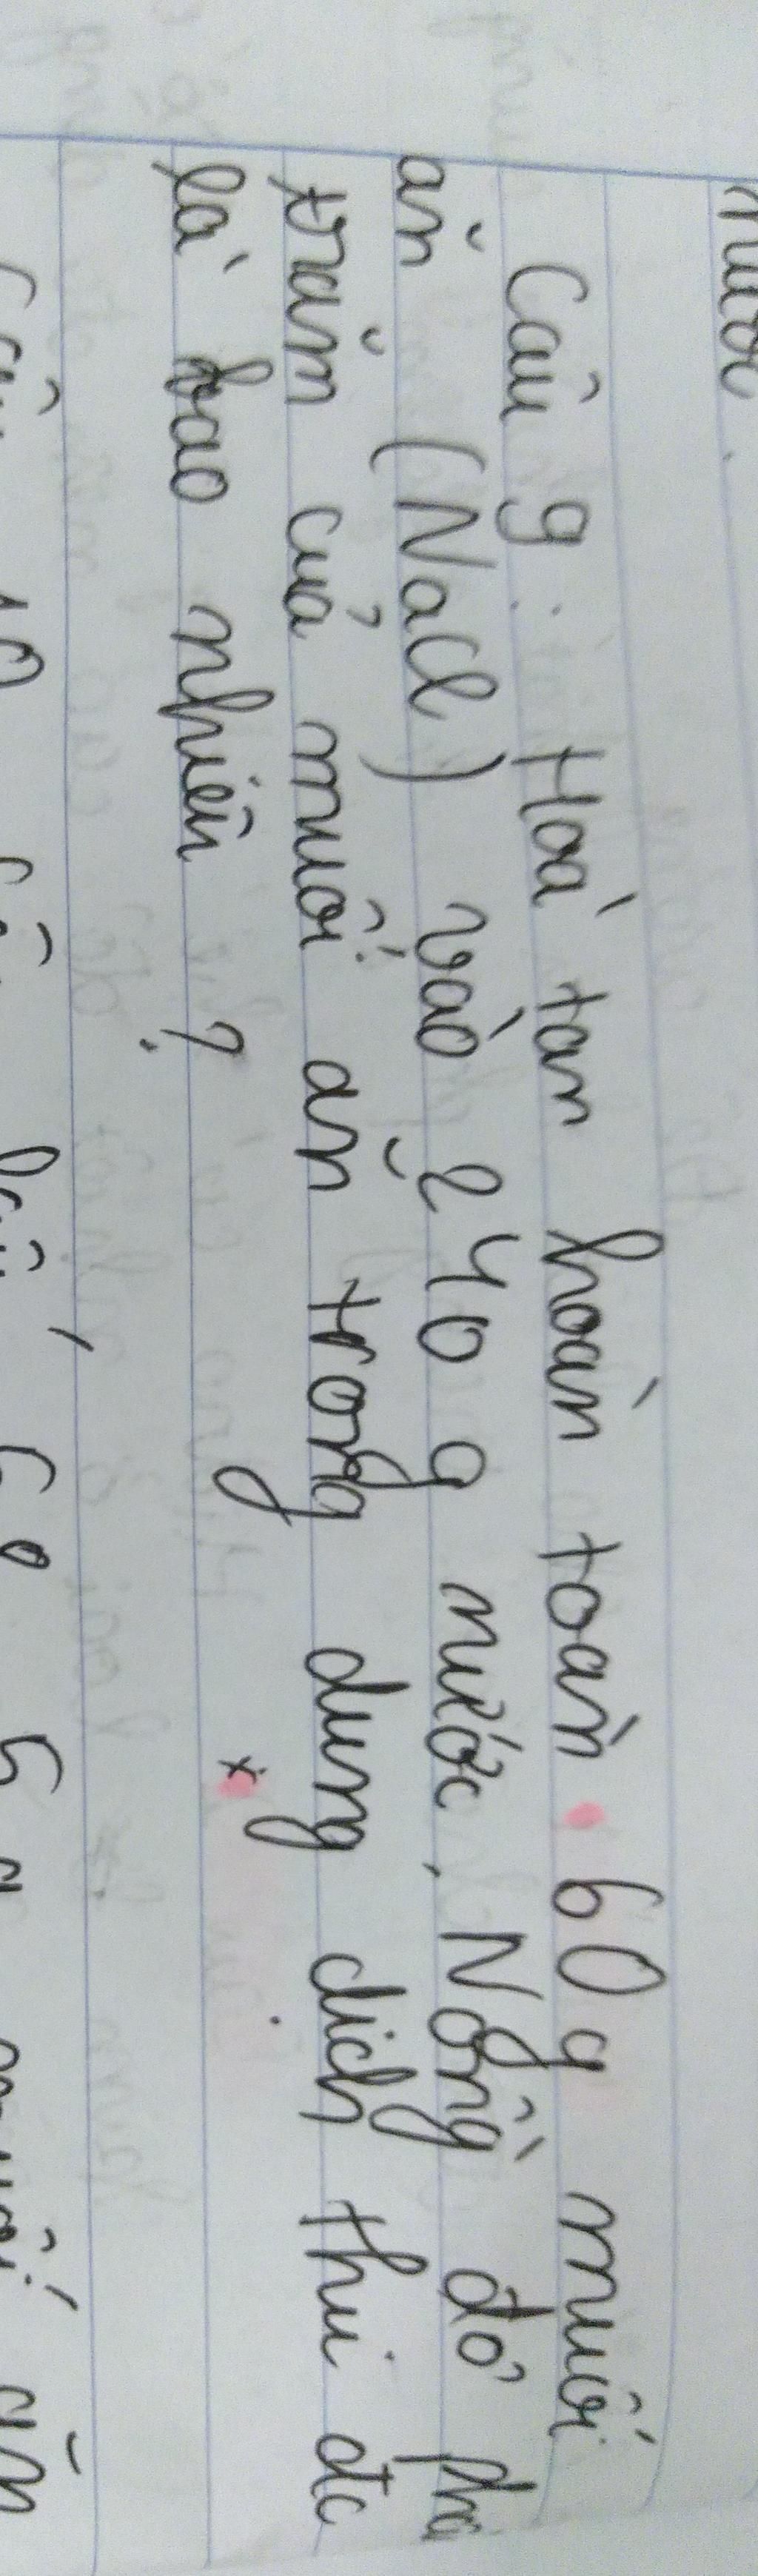 Câu 9: Hoà tan hoàn toàn 60g muối
ăn (NaCl) vào 240 g nước. Nồng độ
trăm của muối ăn trong dung dịch thu đc
là bao nhiêu ?